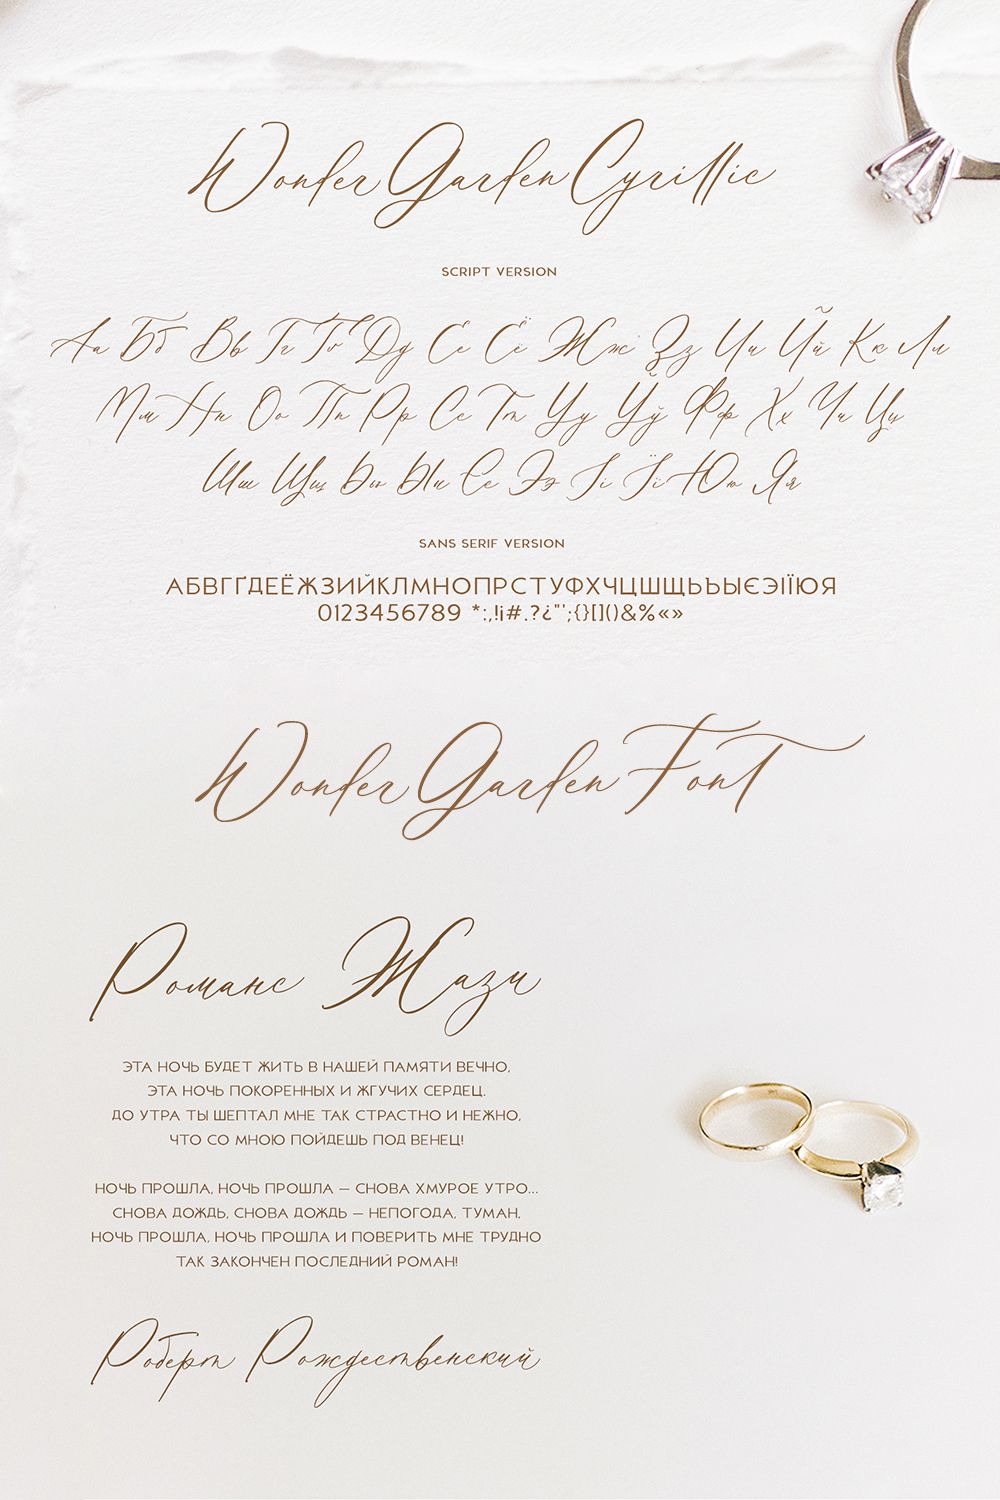 Wonder Garden Cyrillic
SCRIPT VERSION
Аа Бб Вв Гг Ґґ Дд Ее Ёё Жж Зз Ии Йй Кк Лл
Мм Нн Оо Пп Рр Сс Тт Уу Ўў Фф Хх Чч Цц
Шш Щщ Ьь Ыы Єє Ээ Іі Її Юю Яя
SANS SERIF VERSION
АБВГҐДЕЁЖЗИЙКЛМНОПРСТУФХЧЦШЩЬЪЫЄЭІЇЮЯ
0123456789 *:,!¡#.?¿"';{}[]()&%«»
Wonder Garden Font
Романс Жази
ЭТА НОЧЬ БУДЕТ ЖИТЬ В НАШЕЙ ПАМЯТИ ВЕЧНО,
ЭТА НОЧЬ ПОКОРЕННЫХ И ЖГУЧИХ СЕРДЕЦ.
ДО УТРА ТЫ ШЕПТАЛ МНЕ ТАК СТРАСТНО И НЕЖНО,
ЧТО СО МНОЮ ПОЙДЕШЬ ПОД ВЕНЕЦ!
НОЧЬ ПРОШЛА, НОЧЬ ПРОШЛА – СНОВА ХМУРОЕ УТРО...
СНОВА ДОЖДЬ, СНОВА ДОЖДЬ – НЕПОГОДА, ТУМАН,
НОЧЬ ПРОШЛА, НОЧЬ ПРОШЛА И ПОВЕРИТЬ МНЕ ТРУДНО
ТАК ЗАКОНЧЕН ПОСЛЕДНИЙ РОМАН!
Роберт Рождественский